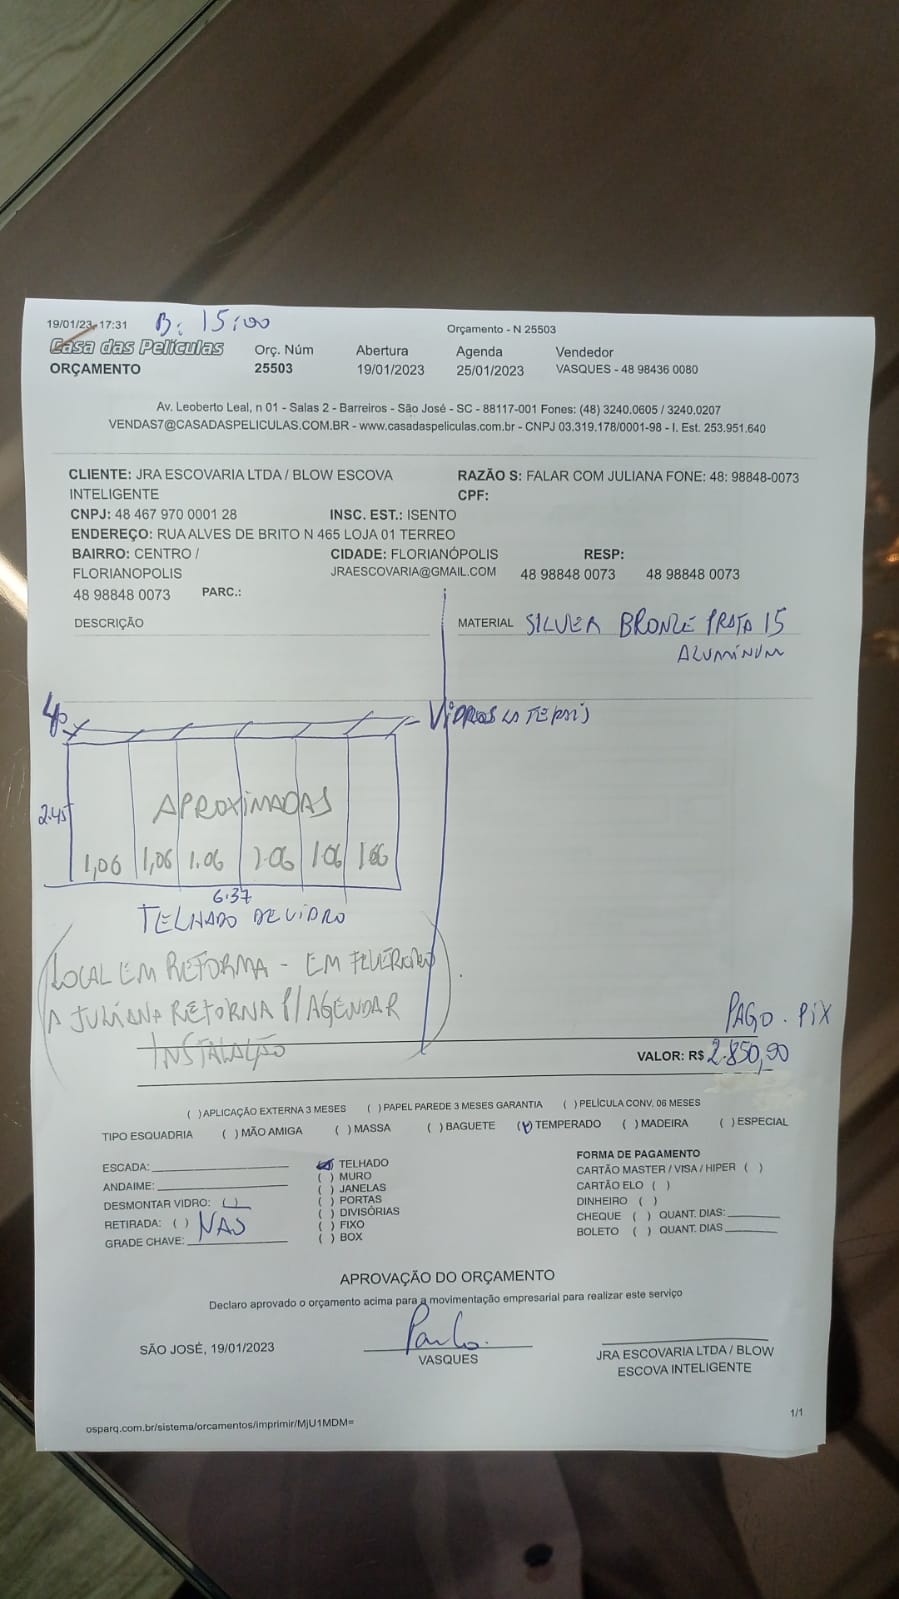 19/01/23, 17:31 B: 15:00 Orçamento - N 25503
Casa das Películas Orç. Núm Abertura Agenda Vendedor
ORÇAMENTO 25503 19/01/2023 25/01/2023 VASQUES - 48 98436 0080
Av. Leoberto Leal, n 01 - Salas 2 - Barreiros - São José - SC - 88117-001 Fones: (48) 3240.0605 / 3240.0207
VENDAS7@CASADASPELICULAS.COM.BR - www.casadaspeliculas.com.br - CNPJ 03.319.178/0001-98 - I. Est. 253.951.640
CLIENTE: JRA ESCOVARIA LTDA / BLOW ESCOVA RAZÃO S: FALAR COM JULIANA FONE: 48: 98848-0073
INTELIGENTE CPF:
CNPJ: 48 467 970 0001 28 INSC. EST.: ISENTO
ENDEREÇO: RUA ALVES DE BRITO N 465 LOJA 01 TERREO
BAIRRO: CENTRO / CIDADE: FLORIANÓPOLIS RESP:
FLORIANOPOLIS JRAESCOVARIA@GMAIL.COM 48 98848 0073 48 98848 0073
48 98848 0073 PARC.:
DESCRIÇÃO MATERIAL SILVER BRONZE PRATA 15
ALUMÍNUM
40 VIDROS LATERAIS
2.45 APROXIMADAS
1,06 1,06 1.06 1.06 1.06 1.06
6.37
TELHADO DE VIDRO
(LOCAL EM REFORMA - EM FEVEREIRO
A JULIANA RETORNA P/ AGENDAR
INSTALAÇÃO)
PAGO. PIX
VALOR: R$ 2.850,90
( )APLICAÇÃO EXTERNA 3 MESES ( )PAPEL PAREDE 3 MESES GARANTIA ( )PELÍCULA CONV. 06 MESES
TIPO ESQUADRIA ( ) MÃO AMIGA ( ) MASSA ( ) BAGUETE ( ) TEMPERADO ( ) MADEIRA ( ) ESPECIAL
ESCADA: ( ) TELHADO FORMA DE PAGAMENTO
ANDAIME: ( ) MURO CARTÃO MASTER / VISA / HIPER ( )
DESMONTAR VIDRO: ( ) ( ) JANELAS CARTÃO ELO ( )
RETIRADA: ( ) NAO ( ) PORTAS DINHEIRO ( )
GRADE CHAVE: ( ) DIVISÓRIAS CHEQUE ( ) QUANT. DIAS:
( ) FIXO BOLETO ( ) QUANT. DIAS
( ) BOX
APROVAÇÃO DO ORÇAMENTO
Declaro aprovado o orçamento acima para a movimentação empresarial para realizar este serviço
Paulo.
SÃO JOSÉ, 19/01/2023 VASQUES JRA ESCOVARIA LTDA / BLOW
ESCOVA INTELIGENTE
osparq.com.br/sistema/orcamentos/imprimir/MjU1MDM= 1/1